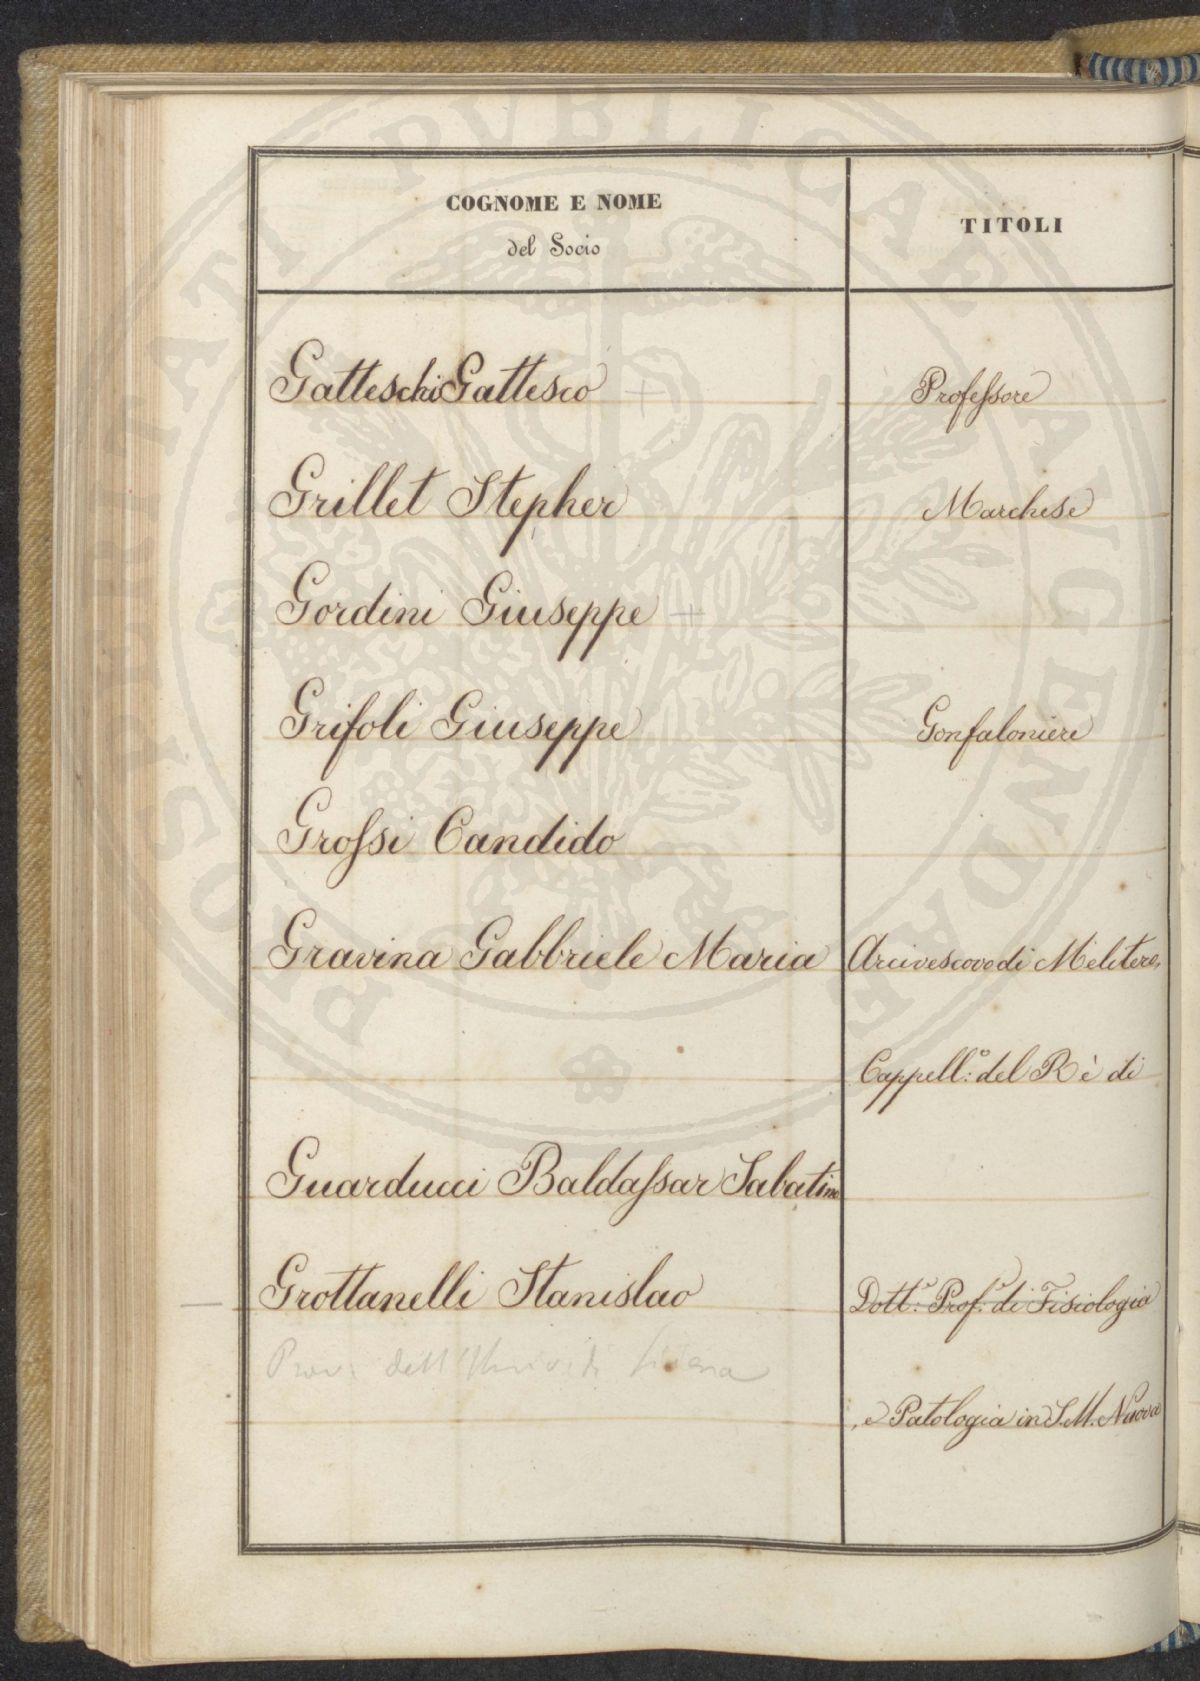 COGNOME E NOME
del Socio
TITOLI
Gatteschi Gattesco +
Professore
Grillet Stepher
Marchese
Gordini Giuseppe +
Grifoli Giuseppe
Gonfaloniere
Grossi Candido
Gravina Gabbriele Maria
Arcivescovo di Melitene,
Cappell:º del Rè di
Guarducci Baldassar Sabatino
Grottanelli Stanislao
Dott:r Prof:r di Fisiologia
Prov: dell'Univ. di Siena
e Patologia in S. M. Nuova
PROSPERITATI PVBLICAE AVGENDAE